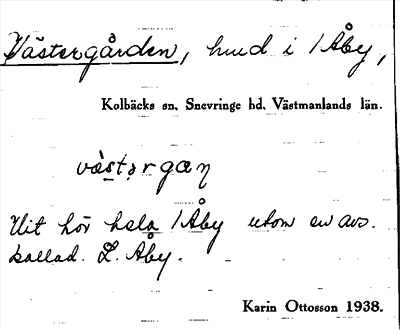 Västergården, hmd i 1 Åby,
Kolbäcks sn. Snevringe hd. Västmanlands län.
västərgaɳ
Hit hör hela 1 Åby utom en avs.
kallad. L. Åby.
Karin Ottosson 1938.